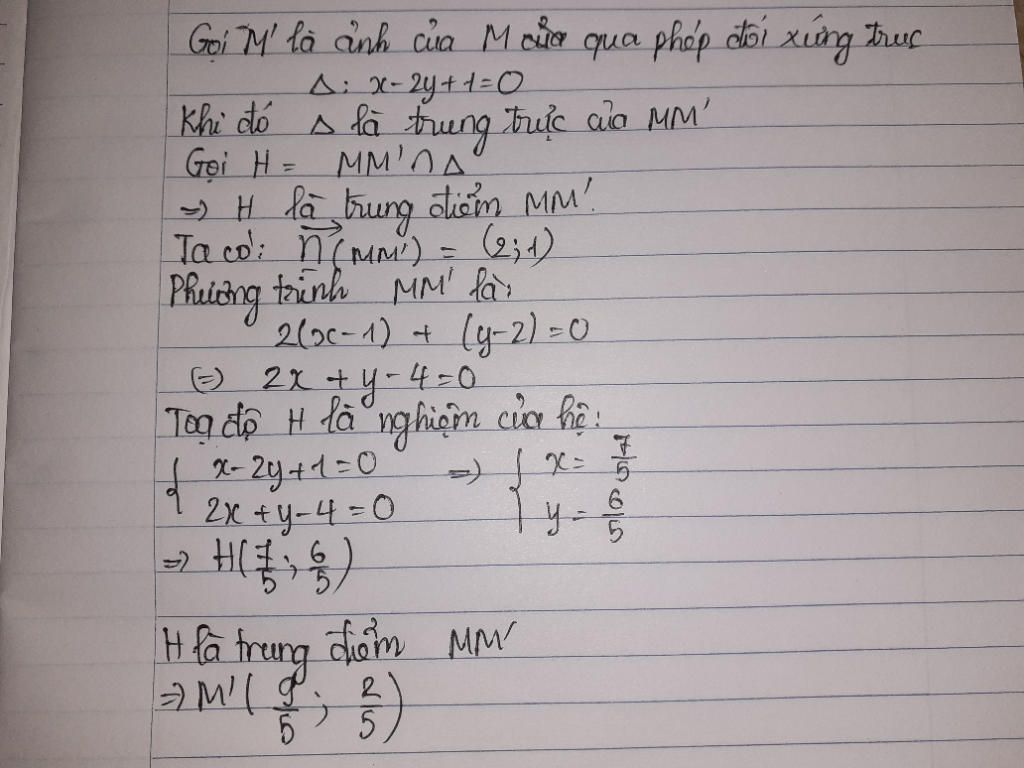 Gọi M' là ảnh của M qua phép đối xứng trục
Δ: x-2y+1=0
Khi đó Δ là trung trực của MM'
Gọi H = MM'∩Δ
=> H là trung điểm MM'.
Ta có: n⃗(MM') = (2;1)
Phương trình MM' là:
2(x-1) + (y-2)=0
(=) 2x+y-4=0
Toạ độ H là nghiệm của hệ:
{ x-2y+1=0 => { x= 7/5
2x+y-4=0 y= 6/5
=> H(7/5; 6/5)
H là trung điểm MM'
=> M'(9/5; 2/5)